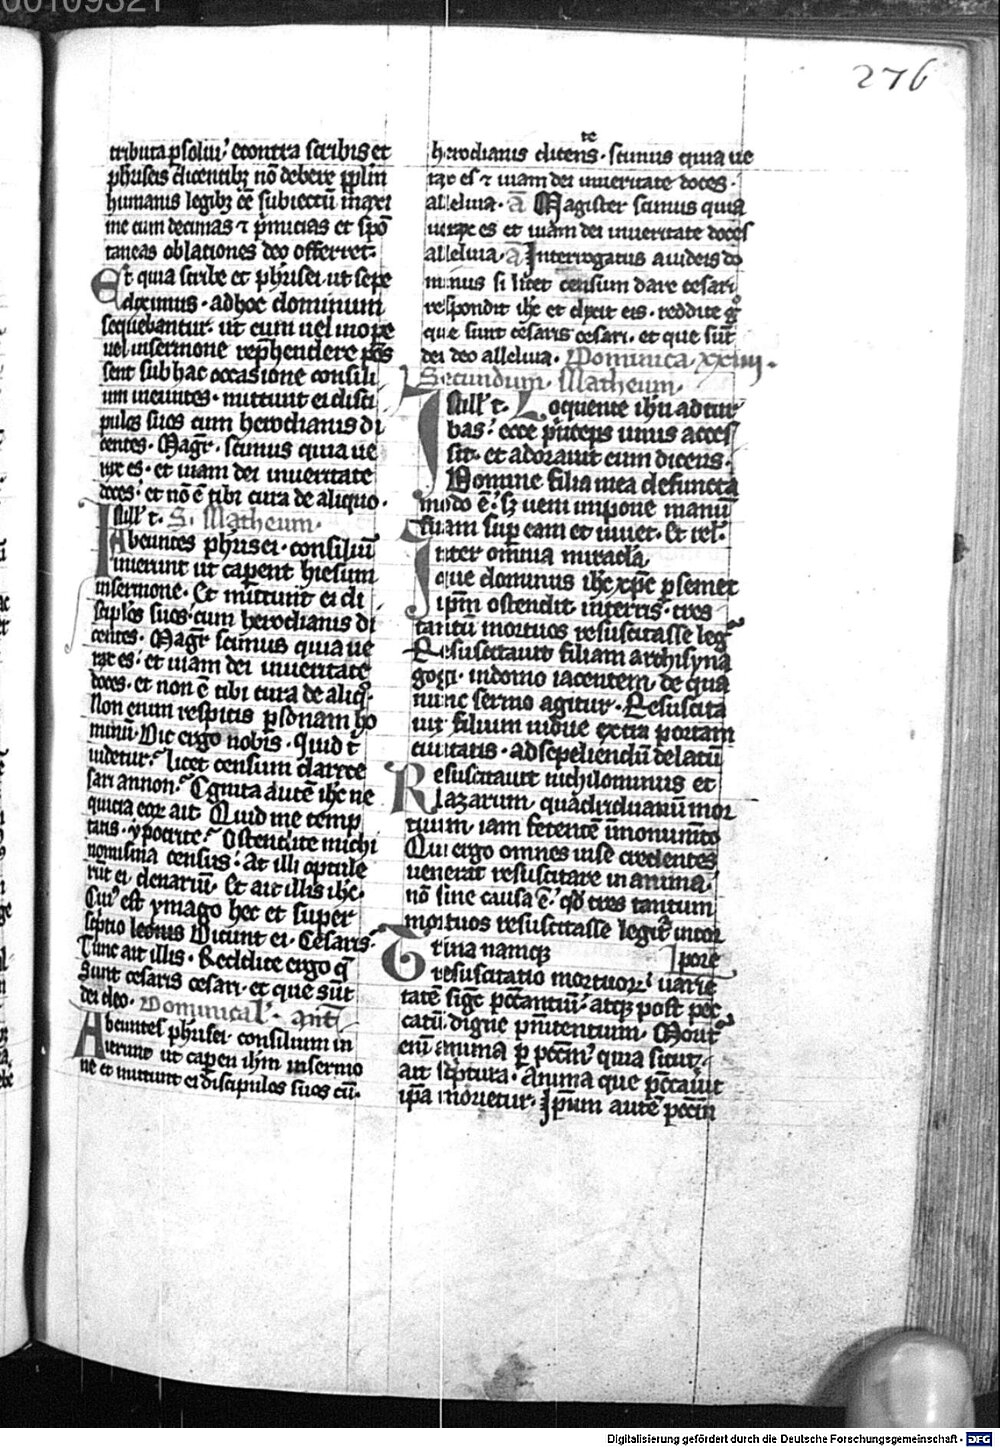 276
tributa ꝑsolui. econtra scribis et
phariseis dicentibꝫ nō debere ppl̄m
humanis legibꝫ eē subiectū maxi
me cum decimas ⁊ pͥmicias et spō
taneas oblationes deo offerret.
Et quia scribe et pharisei. ut sepe
diximus. ad hoc dominum
sequebantur. ut eum uel in oꝑe
uel in sermone rep̄hendere pos
sent sub hac occasione consili
um ineuntes. mittunt ei disci
pulos suos cum herodianis di
centes. Magr̄. scimus quia ue
rax es. et uiam dei in ueritate
doces. et nō ē tibi cura de aliquo.
In illo t. S. Matheum.
Abeuntes pharisei. consiliū
inierunt ut caperent hiesum
in sermone. Et mittunt ei di
scipl'os suos. cum herodianis di
centes. Magr̄ scimus quia ue
rax es. et uiam dei in ueritate
doces. et non ē tibi cura de aliq°.
Non enim respicis ꝑsonam ho
minū. Dic ergo nobis. Quid t'
uidetur. licet censum dari ce
sari an non. Cognita autē ih'c ne
quicia eoꝝ ait. Quid me temp
tatis. ypocrite. Ostendite michi
nomisma census. At illi optule
rūt ei denariū. Et ait illis ih'c.
Cui' est ymago hec et super
scriptio. Dicunt ei. Cesaris.
Tunc ait illis. Reddite ergo q̄
sunt cesaris cesari. et que sūt
dei deo. Dominical'. Ant
Abeuntes pharisei. consilium in
ierunt ut caperent ih'm in sermo
ne et mittunt ei discipulos suos cū.
te
herodianis dicens. scimus quia ue
rax es ⁊ uiam dei in ueritate doces.
alleluia. A Magister scimus quia
uerax es et uiam dei in ueritate doces
alleluia. A Interrogatus a iudeis do
minus si licet censum dare cesari
respondit ih'c et dixit eis. reddite g°
que sunt cesaris cesari. et que sūt
dei deo alleluia. Dominica. xxiiij.
Secundum. Matheum.
In illo t. Loquente ih'u ad tur
bas. ecce pͥnceps unus acces
sit. et adorauit eum dicens.
Domine filia mea defuncta
modo ē. sꝫ ueni impone manū
tuam sup eam et uiuet. Et rel'.
Inter omnia miracl'a
que dominus ih'c xp̄c ꝑ semet
ip̄m ostendit in terris. tres
tantū mortuos resuscitasse legit
Resuscitauit filiam archisyna
gogi. in domo iacentem. de qua
nunc sermo agitur. Resuscita
uit filium uidue extra portam
ciuitatis. ad sepeliendū delatū
Resuscitauit nichilominus et
lazarum. quadriduanū mor
tuum. iam fetentē ī monum̄to
Qui ergo omnes in se credentes
uenerat resuscitare in anima.
nō sine causa ē. qd' tres tantum
mortuos resuscitasse legit in cor
Trina namqꝫ pore
resuscitatio mortuorꝫ uarie
tatē siḡt peccantiū. atqꝫ post pec
catū. digne penitentium. Morit̄
enī anima ꝑ pecc̄m. quia sicut
ait scͥptura. Anima que peccauit
ip̄a morietur. Ip̄sum autē pecc̄m
Digitalisierung gefördert durch die Deutsche Forschungsgemeinschaft - DFG